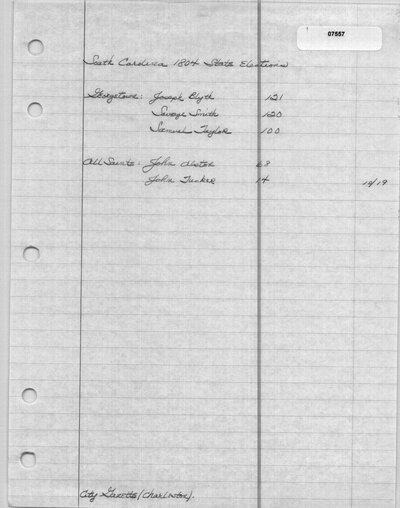 07557
South Carolina 1804 State Elections
Georgetown: Joseph Blyth 121
Savage Smith 120
Samuel Taylor 100
All Saints: John Alston 68
John Tucker 14 10/19
City Gazette (Charleston).